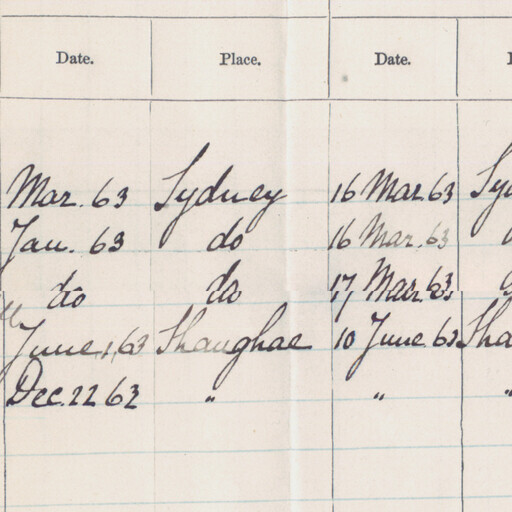 Date. Place. Date.
Mar. 63 Sydney 16 Mar. 63
Jan. 63 do 16 Mar. 63
do do 17 Mar. 63
June 1, 63 Shanghae 10 June. 63 Sha
Dec. 22 62 " " "